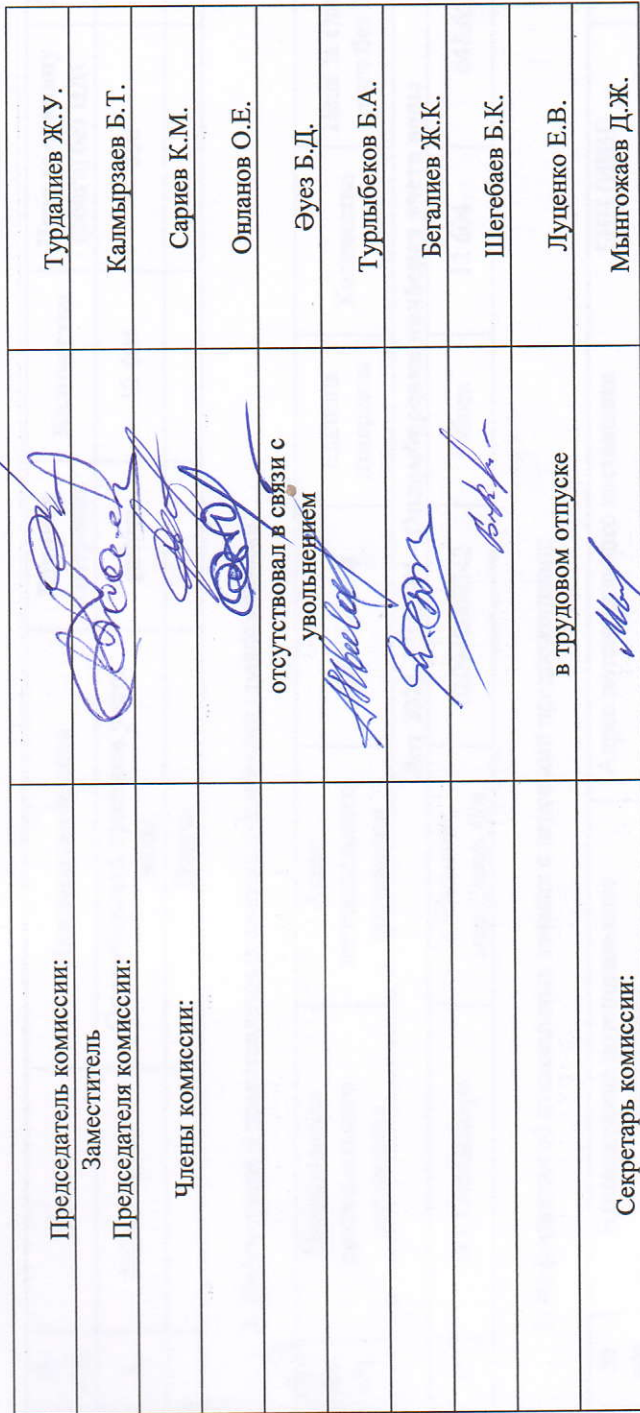 Председатель комиссии: Турдалиев Ж.У.
Заместитель
Председателя комиссии: Калмырзаев Б.Т.
Члены комиссии: Сариев К.М.
Онланов О.Е.
отсутствовал в связи с
увольнением Әуез Б.Д.
Турлыбеков Б.А.
Бегалиев Ж.К.
Шегебаев Б.К.
в трудовом отпуске Луценко Е.В.
Секретарь комиссии: Мынгожаев Д.Ж.